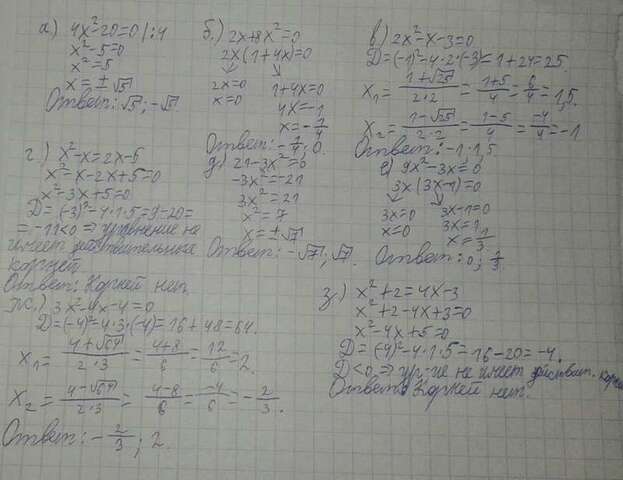 а) 4x²-20=0 |:4
x²-5=0
x²=5
x=±√5
Ответ: √5; -√5.
б.) 2x+8x²=0
2x(1+4x)=0
2x=0 1+4x=0
x=0 4x=-1
x=-1/4
Ответ: -1/4; 0.
в) 2x²-x-3=0
D=(-1)²-4·2·(-3)=1+24=25.
x₁=(1+√25)/(2·2)=(1+5)/4=6/4=1,5.
x₂=(1-√25)/(2·2)=(1-5)/4=-4/4=-1
Ответ: -1; 1,5.
г.) x²-x=2x-5
x²-x-2x+5=0
x²-3x+5=0
D=(-3)²-4·1·5=9-20=
=-11<0 ⇒ уравнение не
имеет действительных
корней
Ответ: Корней нет.
д) 21-3x²=0
-3x²=-21
3x²=21
x²=7
x=±√7
Ответ: -√7; √7.
е) 9x²-3x=0
3x(3x-1)=0
3x=0 3x-1=0
x=0 3x=1
x=1/3.
Ответ: 0; 1/3
ж.) 3x²-4x-4=0
D=(-4)²-4·3·(-4)=16+48=64.
x₁=(4+√64)/(2·3)=(4+8)/6=12/6=2.
x₂=(4-√64)/(2·3)=(4-8)/6=-4/6=-2/3.
Ответ: -2/3; 2.
з) x²+2=4x-3
x²+2-4x+3=0
x²-4x+5=0
D=(-4)²-4·1·5=16-20=-4.
D<0 ⇒ ур-ие не имеет действит. корней
Ответ: Корней нет.